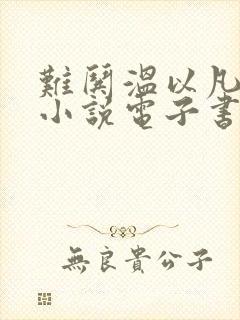 難鬨溫以凡
小說電子書
無良貴公子